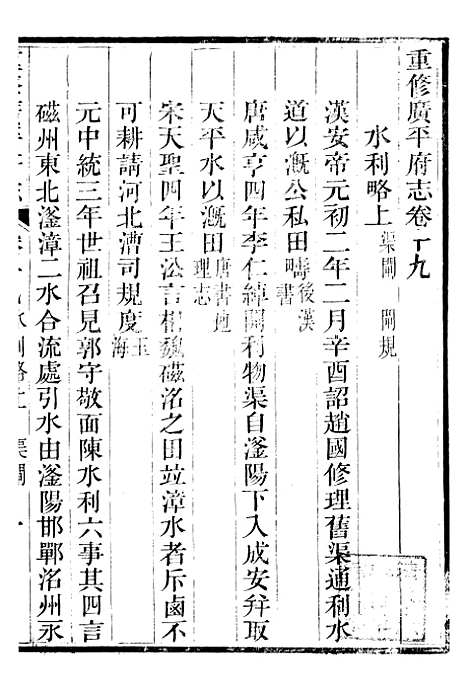 重修廣平府志卷十九
水利略上 渠閘 閘規
漢安帝元初二年二月辛酉詔趙國修理舊渠通利水
道以溉公私田疇 後漢書
唐咸亨四年李仁綽開利物渠自滏陽下入成安幷取
天平水以溉田 唐書地理志
宋天聖四年王沿言相魏磁洺之田並漳水者斥鹵不
可耕請河北漕司規度 玉海
元中統三年世祖召見郭守敬面陳水利六事其四言
磁州東北滏漳二水合流處引水由滏陽邯鄲洺州永
水利略上 渠閘 一